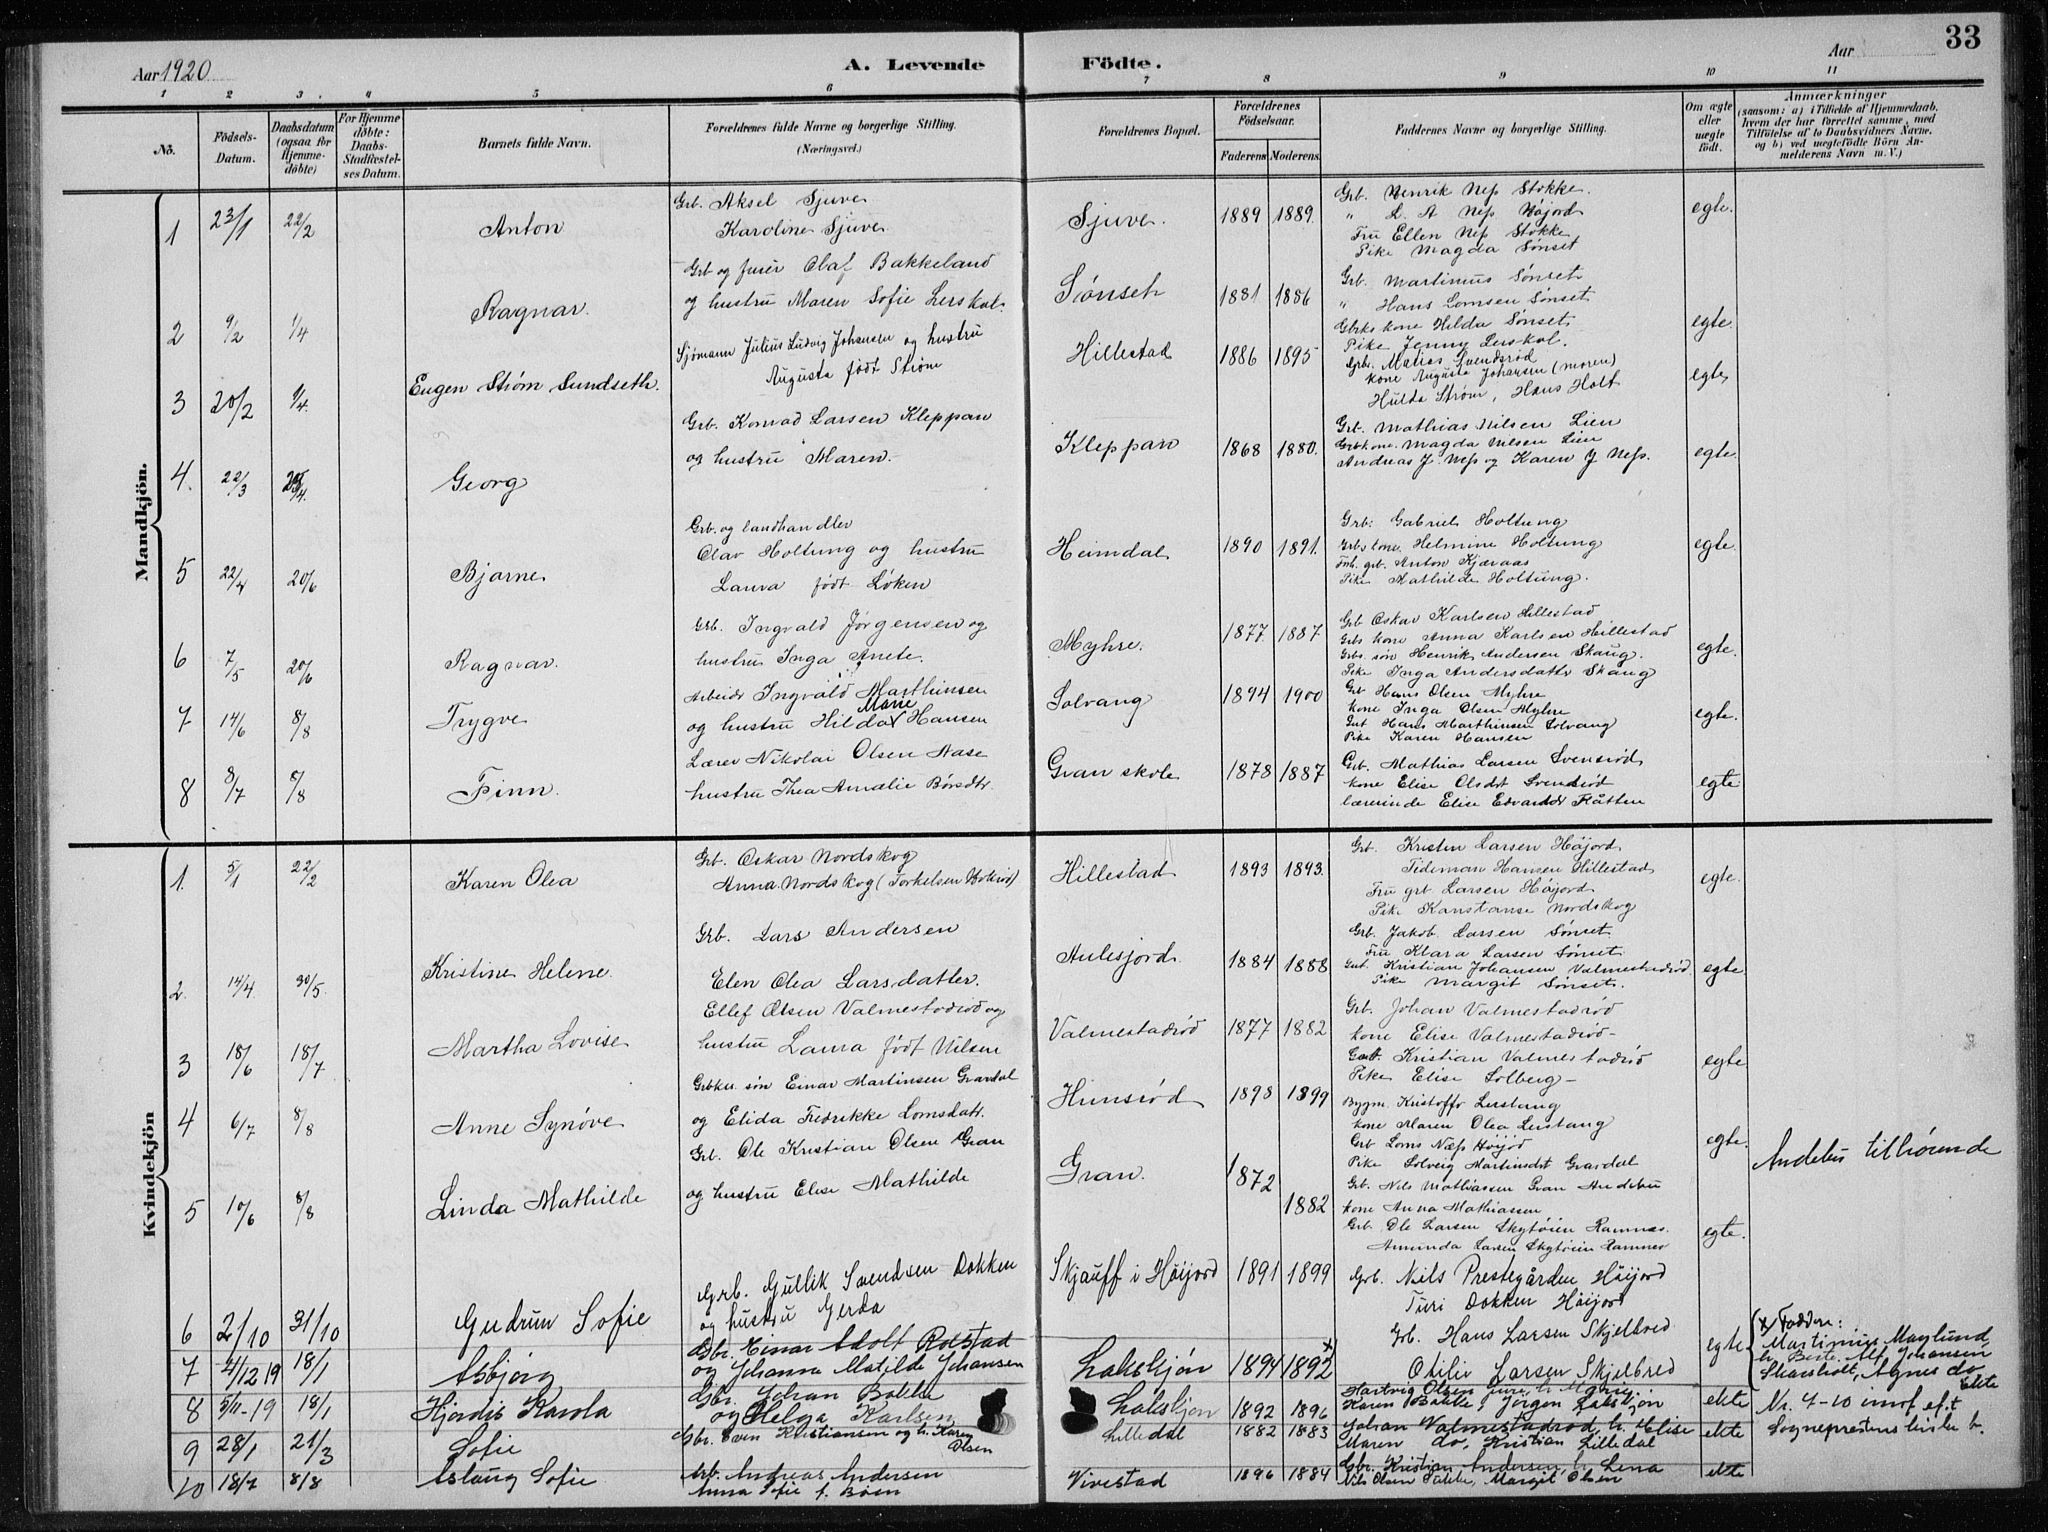 33
Aar 1920
A. Levende
Födte.
Aar
1 2 3 4 5 6 7 8 9 10 11
No.
Födsels-Datum.
Daabsdatum (ogsaa for Hjemmedöbte)
For Hjemmedöbte: Daabs-Stadfæstelses Datum.
Barnets fulde Navn.
Forældrenes fulde Navne og borgerlige Stilling.
(Næringsvei.)
Forældrenes Bopæl.
Forældrenes Födselsaar.
Faderens. Moderens.
Faddernes Navne og borgerlige Stilling.
Om ægte eller uægte födt.
Anmærkninger
(saasom: a) i Tilfælde af Hjemmedaab, hvem der har forrettet samme, med Tilföielse af to Daabsvidners Navne, og b) ved uægtefödte Börn Anmelderens Navn m. V.)
Mandkjön.
1 23/1 22/2 Anton
Grb. Aksel Sjuve
Karoline Sjuve
Sjuve. 1889 1889.
Grb. Henrik Ness Stokke.
" L. A Ness Højord
Fru Ellen Ness Stokke
Pike Magda Sønset
egte.
2 9/2 1/4 Ragnar.
Grb og furer Olaf Bakkeland
og hustru Maren Sofie Lerskal.
Sønset 1881 1886
Grb. Martinius Sønset
" Hans Lomsen Sønset
Gbrks kone Hilda Sønset
Pike Jenny Lerskal.
egte.
3 20/2 1/4. Eugen Strøm Sundseth.
Sjømann Julius Ludvig Johansen og hustru
Augusta født Strøm
Hillestad 1886 1895
Grb. Matias Svendsrød
kone Augusta Johansen (moren)
Hulda Strøm, Hans Holt
egte
4. 22/3 25/4. Georg
Grb. Konrad Larsen Kleppan
og hustru Maren.
Kleppan 1868 1880.
Grb. Mathias Nilsen Lien
Grbkone. Magda Nilsen Lien
Andreas J. Ness og Karen J Ness.
egte.
5 22/4 20/6 Bjarne
Grb. og landhandler
Olav Holtung og hustru
Laura født Løken
Heimdal 1890 1891.
Grb. Gabriel Holtung
Grbs kone Helmine Holtung
Fnh. grb. Anton Kjæraas
Pike Mathilde Holtung.
egte.
6 7/5 20/6 Ragnar.
Grb. Ingvald Jørgensen og
hustru Inga Anete.
Myhre. 1877 1887
Grb Oskar Karlsen Hillestad
Grbs kone Anna Karlsen Hillestad
Grbs. søn Henrik Andersen Skaug.
Pike Inga Andersdattr Skaug
egte.
7 14/6 8/8 Trygve
Arbeidr Ingvald Marthinsen
og hustru Hilda Marie Hansen
Solvang 1894 1900
Grb Hans Olsen Myhre
kone Inga Olsen Myhre
Gut Hans Marthinsen Solvang
Pike Karen Hansen
egte.
8 8/7 8/8 Finn
Lærer Nikolai Olsen Aase
hustru Thea Amalie Børsdtr.
Gran skole 1878 1887
Grb. Mathias Larsen Svensrød
kone Elise Olsdt Svendsrød
lærerinde Elise Edvardsdr Flåtten
egte
Kvindekjön
1. 5/1 22/2 Karen Olea
Grb. Oskar Nordskog
Anna Nordskog (Torkelsen Bøkerød)
Hillestad 1893 1893.
Grb. Kristen Larsen Høijord
Tideman Hansen Hillestad
Fru grb. Larsen Høijord
Pike Konstanse Nordskog
egte.
2. 14/4. 30/5. Kristine Helene.
Grb. Lars Andersen
Elen Olea Larsdatter.
Aulesjord. 1884 1888
Grb. Jakob Larsen Sønset
Fru Klara Larsen Sønset
Gut. Kristian Johansen Valmestadrød
Pike Margit Sønset.
egte
3 18/6 18/7 Martha Lovise
Ellef Olsen Valmestadrød og
hustru Laura født Nilsen
Valmestadrød 1877 1882
Grb. Johan Valmestadrød
kone Elise Valmestadrød
Gutt Kristian Valmestadrød
Pike Elise Solberg
egte
4 6/7 8/8 Anne Synøve
Grbkr. søn Einar Martinsen Gravdal
og Elida Fredrikke Lomsdatt.
Hunsrød 1898 1899
Bygm. Kristoffr Leistang
kone Maren Olea Leistang
Grb Loms Næss Høijord
Pike Solveig Martinsdt Gravdal
egte.
5 10/6 8/8 Linda Mathilde
Grb. Ole Kristian Olsen Gran
og hustru Elise Mathilde
Gran. 1872 1882
Grb. Nils Mathiassen Gran Andebu
kone Anna Mathiassen
Grb. Ole Larsen Skytøien Ramnæs.
Amunda Larsen Skytøien Ramnes
egte.
Andebu tilhørende
6 2/10 31/10 Gudrun Sofie
Grb. Gullik Svendsen Dokken
og hustru Gerda
Skjauff i Høijord 1891 1899
Grb. Nils Prestegården Høijord
Turi Dokken Høijord
Grb. Hans Larsen Skjelbred
Otilie Larsen Skjelbred
egte
7 4/12 19 18/1 Asbjørg
Gbr. Einar Adolf Rolstad
og Johanna Matilde Johansen
Lakskjøn 1894 1892
x) Faddere:
Martinius Møylund,
h. Berte. Alf Johansen
Skarsholt, Agnes do
ekte
8 5/11-19 18/1 Hjørdis Karola
Gbr. Johan Bakke
og Helga Karlsen
Lakskjøn 1892 1896
Hartvig Olsen Fure, h. Mary.
Karen Bakke, Jørgen Lakskjøn
ekte
Nr. 7-10 innf. eft.
Sogneprestens kirkeb.
9 28/1 21/3 Sofie
Gbr. Even Kristiansen og h. Karen
Olsen
Lilledal 1882 1883
Johan Valmestadrød, h. Elise
Maren do, Kristian Lilledal
ekte
10 18/7 8/8 Aslaug Sofie
Arb. Andreas Andersen
Anna Sofie f. Bøen
Vivestad 1896 1884
Gbr. Kristian Andersen, h. Lena
Nils Olsen Bakke, Margit Olsen
ekte